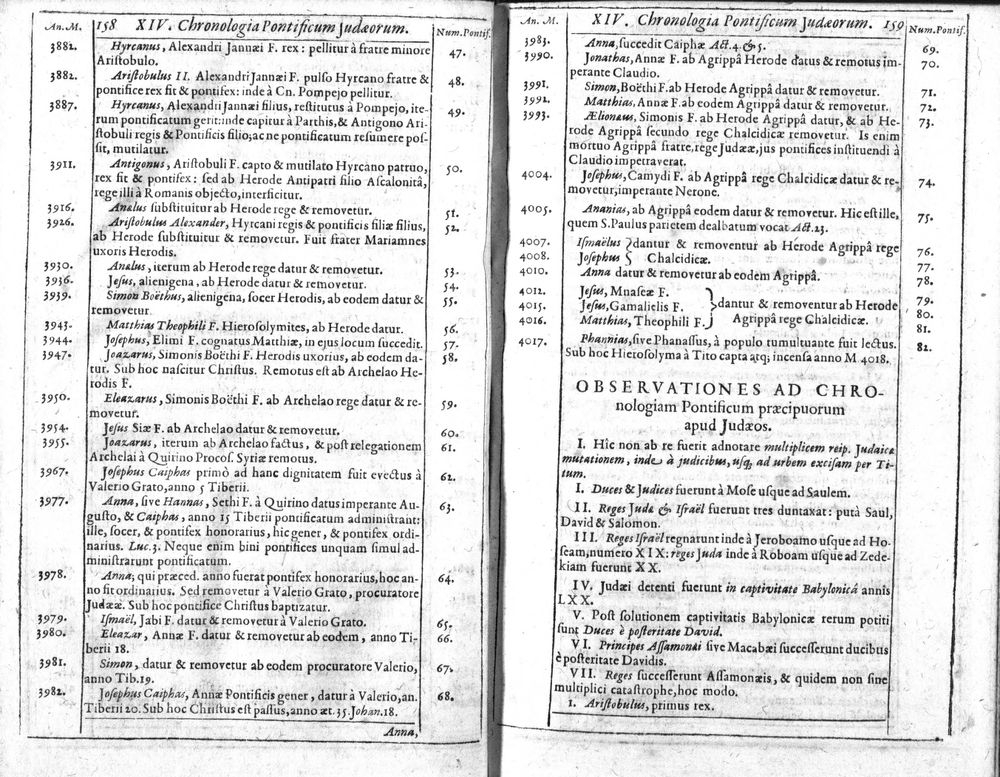 An. M. 158 XIV. Chronologia Pontificum Judæorum. Num. Pontif.
3882. Hyrcanus, Alexandri Jannæi F. rex: pellitur à fratre minore 47.
Aristobulo.
3882. Aristobulus II. Alexandri Jannæi F. pulso Hyrcano fratre & 48.
pontifice rex fit & pontifex: inde à Cn. Pompejo pellitur.
3887. Hyrcanus, Alexandri Jannæi filius, restitutus à Pompejo, ite- 49.
rum pontificatum gerit: inde capitur à Parthis, & Antigono Ari-
stobuli regis & Pontificis filio; ac ne pontificatum resumere pos-
sit, mutilatur.
3911. Antigonus, Aristobuli F. capto & mutilato Hyrcano patruo, 50.
rex fit & pontifex: sed ab Herode Antipatri filio Ascalonitâ,
rege illi à Romanis objecto, interficitur.
3916. Analus substituitur ab Herode rege & removetur. 51.
3926. Aristobulus Alexander, Hyrcani regis & pontificis filiæ filius, 52.
ab Herode substituitur & removetur. Fuit frater Mariamnes
uxoris Herodis.
3930. Analus, iterum ab Herode rege datur & removetur. 53.
3936. Jesus, alienigena, ab Herode datur & removetur. 54.
3939. Simon Boëthus, alienigena, socer Herodis, ab eodem datur & 55.
removetur.
3943. Matthias Theophili F. Hierosolymites, ab Herode datur. 56.
3944. Josephus, Elimi F. cognatus Matthiæ, in ejus locum succedit. 57.
3947. Joazarus, Simonis Boëthi F. Herodis uxorius, ab eodem da- 58.
tur. Sub hoc nascitur Christus. Remotus est ab Archelao He-
rodis F.
3950. Eleazarus, Simonis Boëthi F. ab Archelao rege datur & re- 59.
movetur.
3954. Jesus Siæ F. ab Archelao datur & removetur. 60.
3955. Joazarus, iterum ab Archelao factus, & post relegationem 61.
Archelai à Quirino Procos. Syriæ remotus.
3967. Josephus Caiphas primò ad hanc dignitatem fuit evectus à 62.
Valerio Grato, anno 5 Tiberii.
3977. Anna, sive Hannas, Sethi F. à Quirino datus imperante Au- 63.
gusto, & Caiphas, anno 15 Tiberii pontificatum administrant:
ille, socer, & pontifex honorarius, hic gener, & pontifex ordi-
narius. Luc. 3. Neque enim bini pontifices unquam simul ad-
ministrarunt pontificatum.
3978. Anna; qui præced. anno fuerat pontifex honorarius, hoc an- 64.
no fit ordinarius. Sed removetur à Valerio Grato, procuratore
Judææ. Sub hoc pontifice Christus baptizatur.
3979. Ismaël, Jabi F. datur & removetur à Valerio Grato. 65.
3980. Eleazar, Annæ F. datur & removetur ab eodem, anno Ti- 66.
berii 18.
3981. Simon, datur & removetur ab eodem procuratore Valerio, 67.
anno Tib. 19.
3982. Josephus Caiphas, Annæ Pontificis gener, datur à Valerio, an. 68.
Tiberii 20. Sub hoc Christus est passus, anno æt. 35. Johan. 18.
Anna,
An. M. XIV. Chronologia Pontificum Judæorum. 159 Num. Pontif.
3983. Anna, succedit Caiphæ Act. 4. & 5. 69.
3990. Jonathas, Annæ F. ab Agrippâ Herode datus & remotus im- 70.
perante Claudio.
3991. Simon, Boëthi F. ab Herode Agrippâ datur & removetur. 71.
3992. Matthias, Annæ F. ab eodem Agrippâ datur & removetur. 72.
3993. Ælionæus, Simonis F. ab Herode Agrippâ datur, & ab He- 73.
rode Agrippâ secundo rege Chalcidicæ removetur. Is enim
mortuo Agrippâ fratre, rege Judææ, jus pontifices instituendi à
Claudio impetraverat.
4004. Josephus, Camydi F. ab Agrippâ rege Chalcidicæ datur & re- 74.
movetur, imperante Nerone.
4005. Ananias, ab Agrippâ eodem datur & removetur. Hic est ille, 75.
quem S. Paulus parietem dealbatum vocat Act. 23.
4007. Ismaëlus } dantur & removentur ab Herode Agrippâ rege 76.
4008. Josephus } Chalcidicæ. 77.
4010. Anna datur & removetur ab eodem Agrippâ. 78.
4012. Jesus, Mnaseæ F. 79.
4015. Jesus, Gamalielis F. } dantur & removentur ab Herode 80.
4016. Matthias, Theophili F. } Agrippâ rege Chalcidicæ. 81.
4017. Phannias, sive Phanassus, à populo tumultuante fuit lectus. 82.
Sub hoc Hierosolyma à Tito capta atq; incensa anno M 4018.
OBSERVATIONES AD CHRO-
nologiam Pontificum præcipuorum
apud Judæos.
I. Hîc non ab re fuerit adnotare multiplicem reip. Judaicæ
mutationem, inde à judicibus, usq; ad urbem excisam per Ti-
tum.
I. Duces & Judices fuerunt à Mose usque ad Saulem.
II. Reges Judæ & Israël fuerunt tres duntaxat: putà Saul,
David & Salomon.
III. Reges Israël regnarunt inde à Jeroboamo usque ad Ho-
seam, numero XIX: reges Juda inde à Roboam usque ad Zede-
kiam fuerunt XX.
IV. Judæi detenti fuerunt in captivitate Babylonicâ annis
LXX.
V. Post solutionem captivitatis Babylonicæ rerum potiti
sunt Duces è posteritate David.
VI. Principes Assamonæi sive Macabæi successerunt ducibus
è posteritate Davidis.
VII. Reges successerunt Assamonæis, & quidem non sine
multiplici catastrophe, hoc modo.
1. Aristobulus, primus rex.